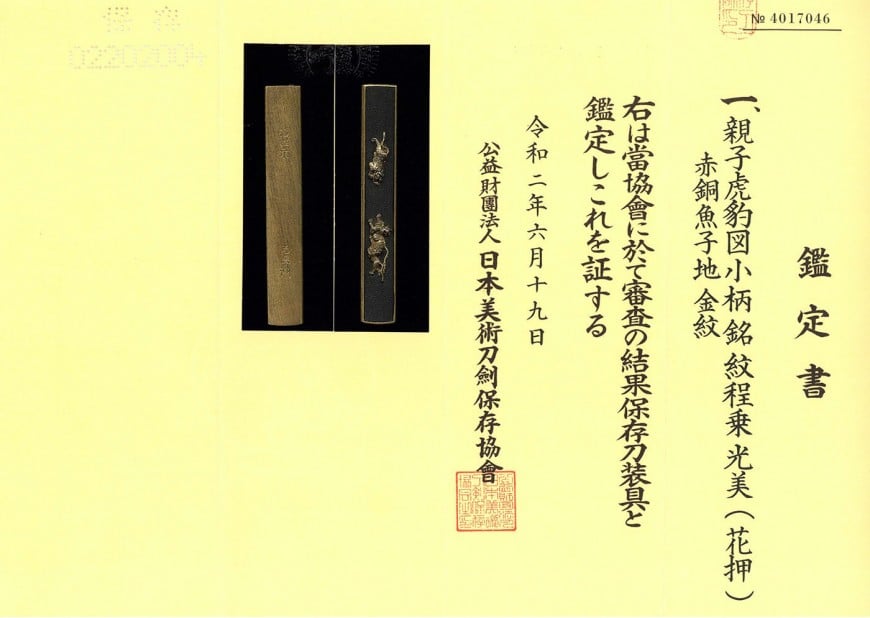 № 4017046
鑑定書
一、親子虎豹図小柄 銘 紋程乗 光美(花押)
赤銅魚子地 金紋
右は當協會に於て審査の結果保存刀装具と
鑑定しこれを証する
令和二年六月十九日
公益財團法人 日本美術刀劍保存協會
保存
02202004